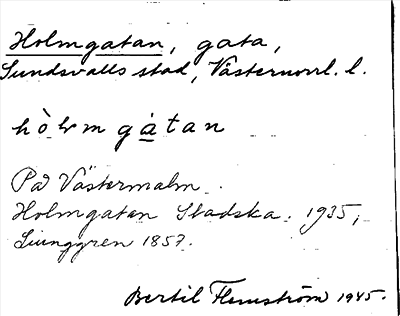 Holmgatan, gata,
Sundsvalls stad, Västernorrl. l.
hòlmgàtan
På Västermalm.
Holmgatan Stadska. 1935;
Ljunggren 1857.
Bertil Flemström 1945.